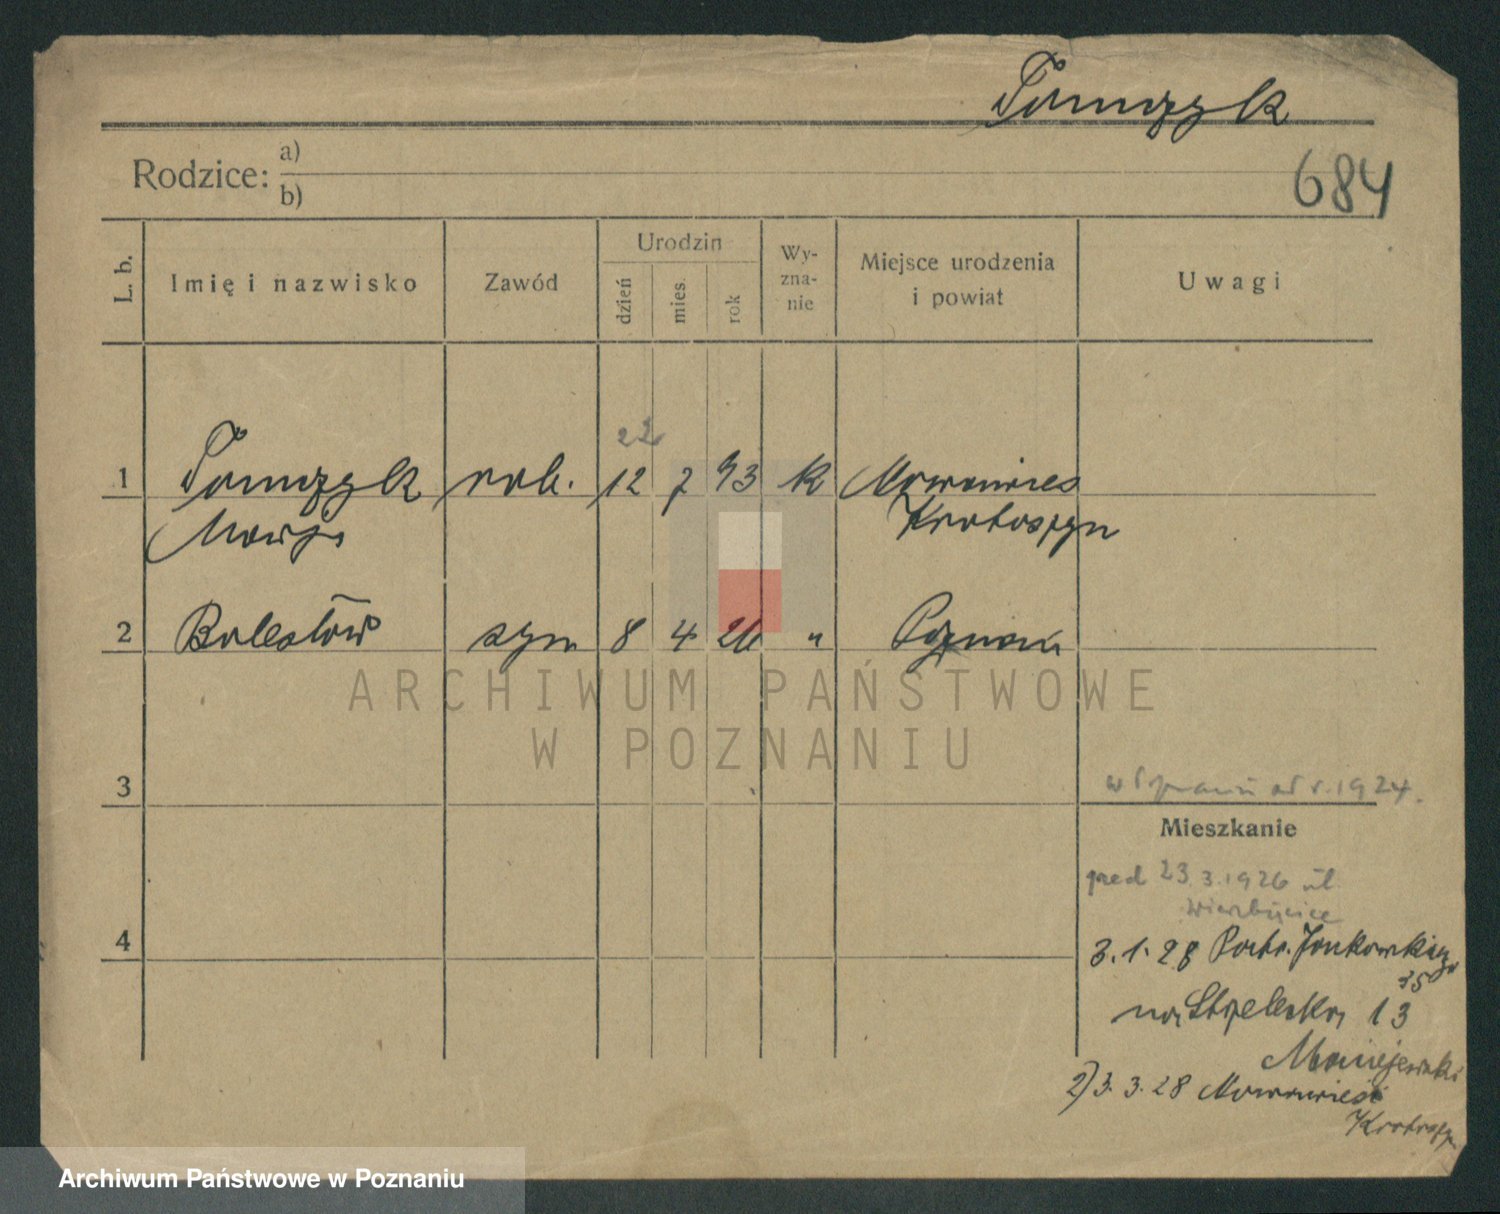 Tomczyk
684
Rodzice: a)
b)
L. b.
Imię i nazwisko
Zawód
Urodzin
dzień
mies.
rok
Wy-
zna-
nie
Miejsce urodzenia
i powiat
Uwagi
22
1 Tomczyk rob. 12 7 93 k Nowawieś
Marja Krotoszyn
2 Bolesław syn 8 4 26 " Poznań
ARCHIWUM PAŃSTWOWE
W POZNANIU
3
w Poznaniu od r. 1924.
Mieszkanie
przed 23.3.1926 ul.
Wierzbięcice
4
3.1.28 Jankowskiego
35
na Strzelecka 13
Maciejewski
2) 3.3.28 Nowawieś
Krotoszyn
Archiwum Państwowe w Poznaniu